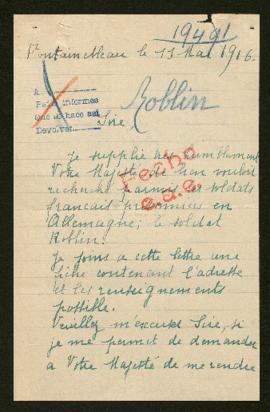 19491
Fontainebleau le 11 Mai 1916.
A
Pedir informes
que se hace así
Devolver
Roblin
Sire
Je supplie très humblement
Votre Majesté de bien vouloir
rechercher parmi les soldats
français prisonniers en
Allemagne; le soldat
Roblin.
Hecho
Je joins à cette lettre une
fiche contenant l'adresse
et les renseignements
possible.
Veuillez m'excuser Sire, si
je me permet de demander
à Votre Majesté de me rendre